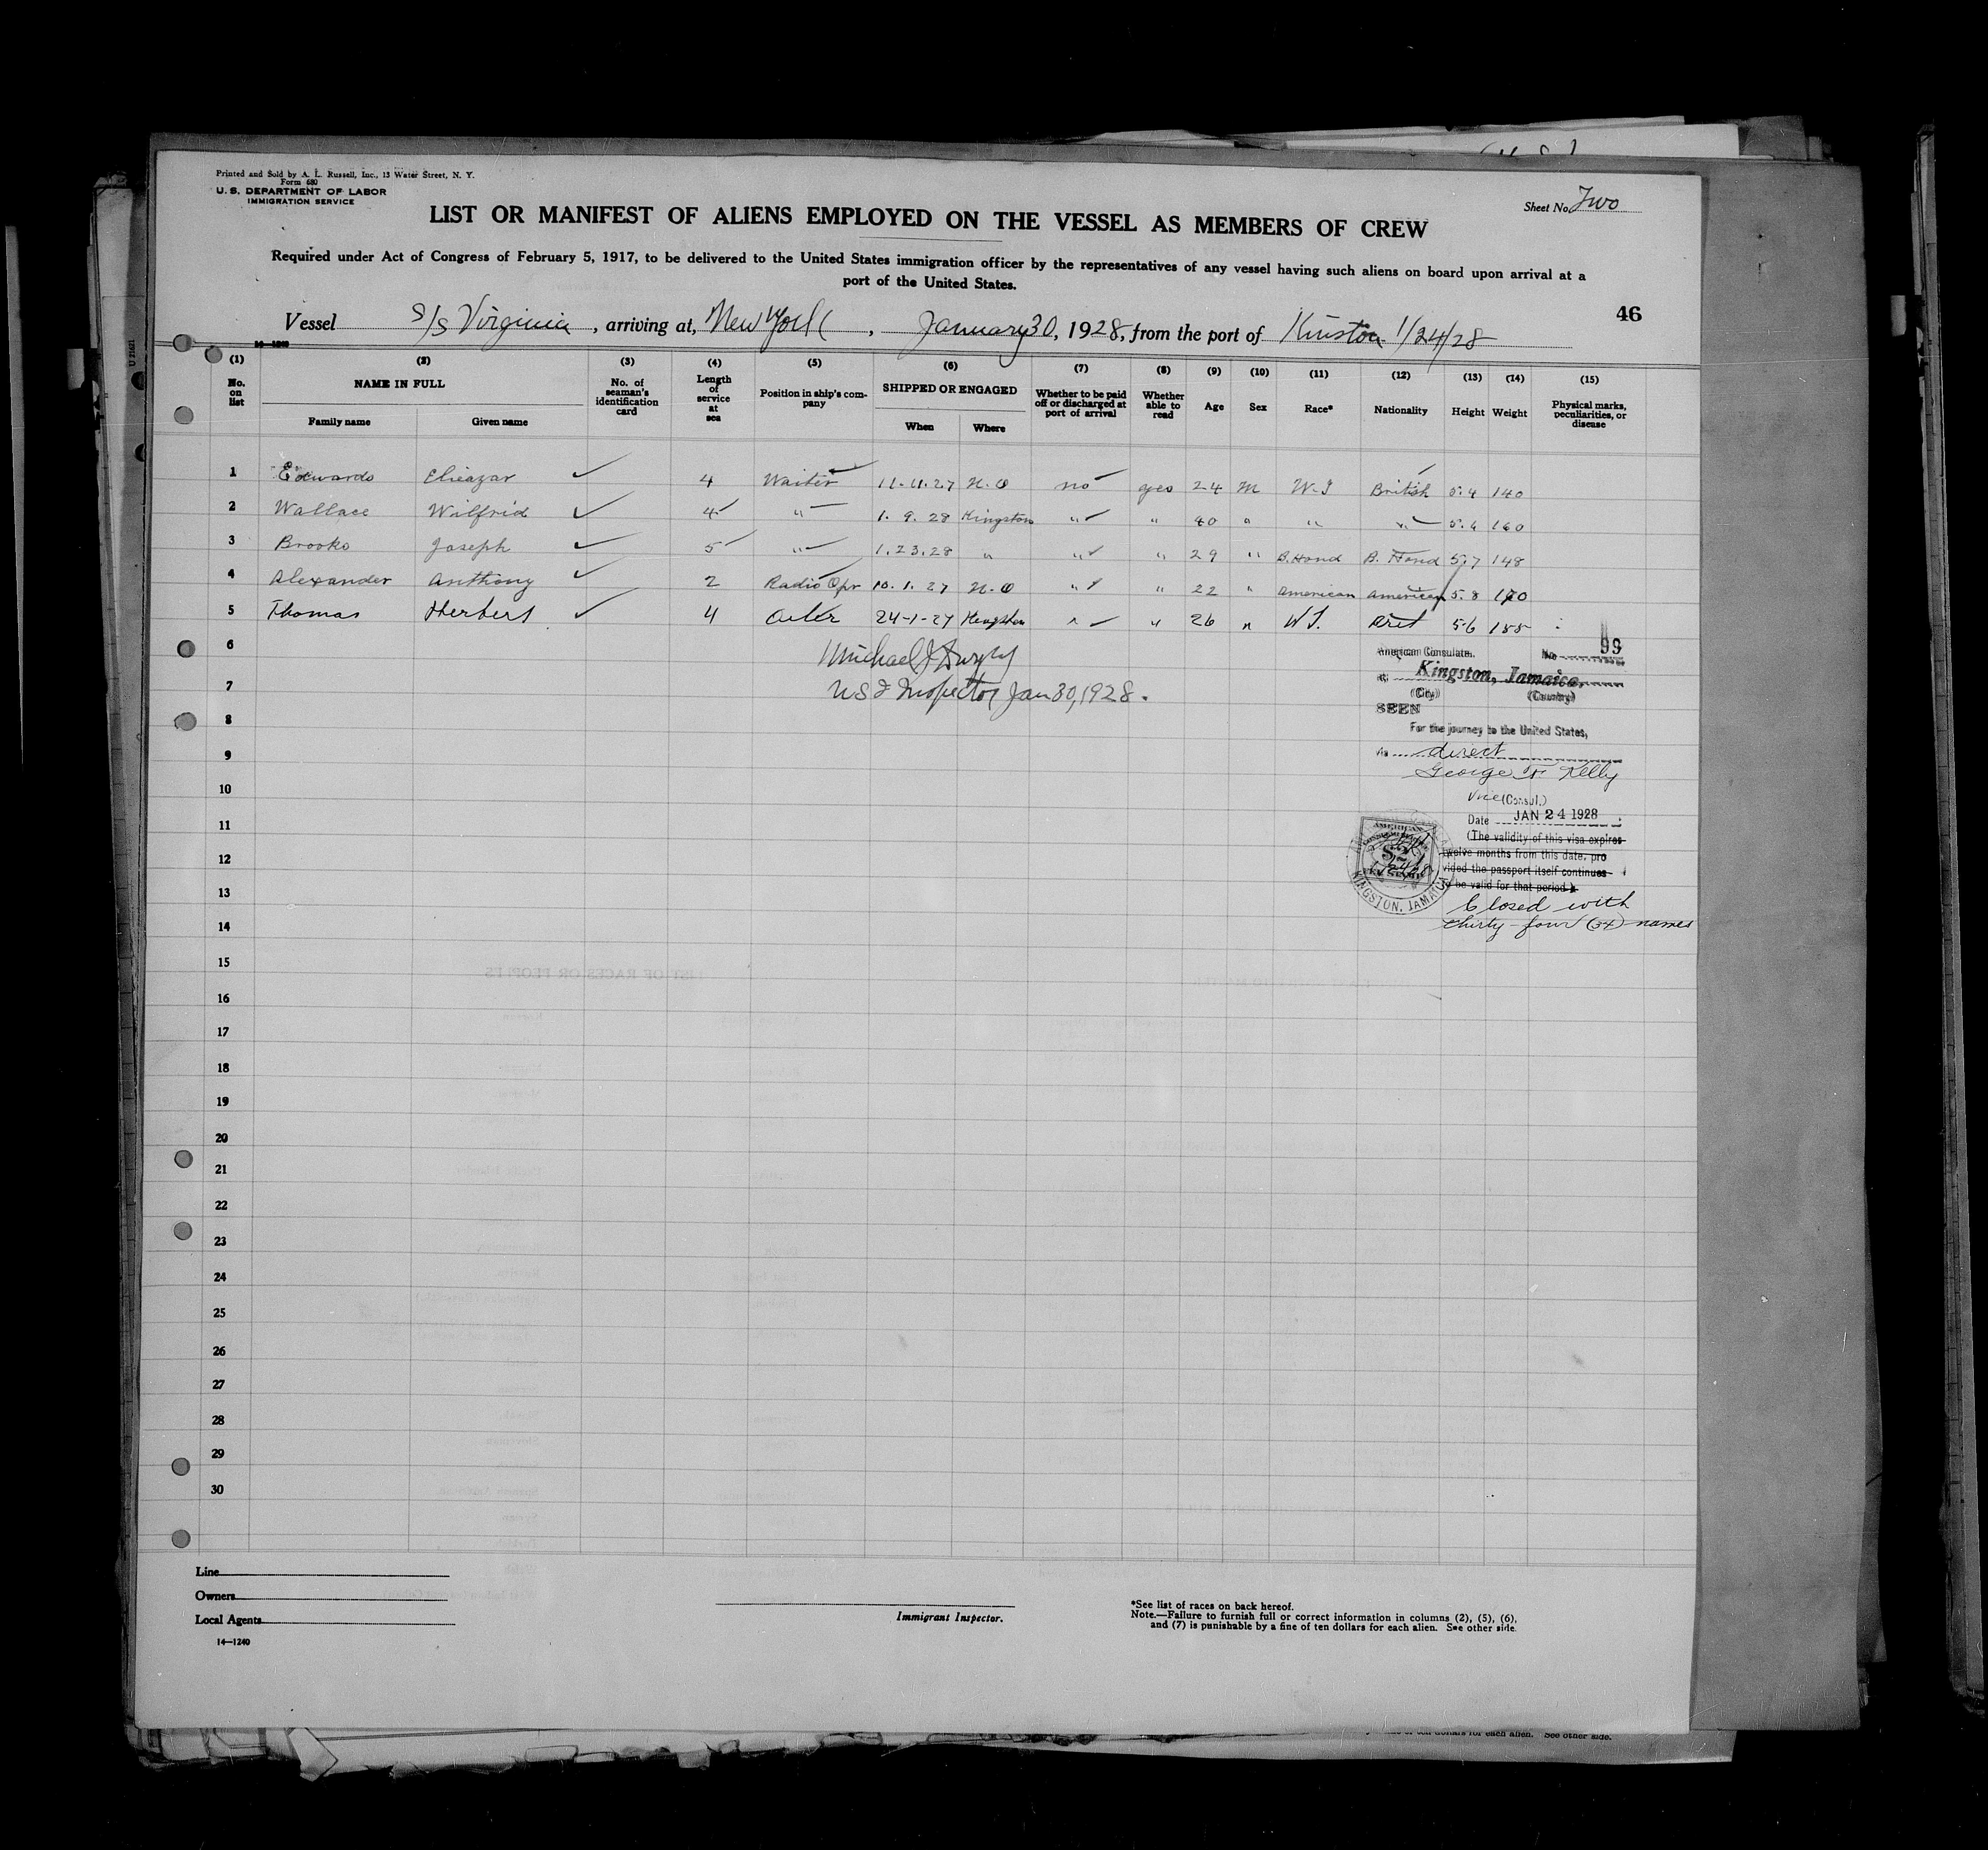 Printed and Sold by A. L. Russell, Inc., 13 Water Street, N. Y.
Form 680
U. S. DEPARTMENT OF LABOR
IMMIGRATION SERVICE
Sheet No. Two
LIST OR MANIFEST OF ALIENS EMPLOYED ON THE VESSEL AS MEMBERS OF CREW
Required under Act of Congress of February 5, 1917, to be delivered to the United States immigration officer by the representatives of any vessel having such aliens on board upon arrival at a
port of the United States.
46
Vessel S/S Virginia, arriving at, New York, January 30, 1928, from the port of Kinston 1/24/28
14—1240
(1) (2) (3) (4) (5) (6) (7) (8) (9) (10) (11) (12) (13) (14) (15)
No. on list
NAME IN FULL
Family name
Given name
No. of seaman's identification card
Length of service at sea
Position in ship's company
SHIPPED OR ENGAGED
When
Where
Whether to be paid off or discharged at port of arrival
Whether able to read
Age
Sex
Race*
Nationality
Height
Weight
Physical marks, peculiarities, or disease
1 Edwards Elieazar 4 Waiter 11.11.27 N.O no yes 24 M W.I British 5.4 140
2 Wallace Wilfrid 4 " 1.9.28 Kingston " " 40 " " " 5.6 160
3 Brooks Joseph 5 " 1.23.28 " " " 29 " B.Hond B. Hond 5.7 148
4 Alexander Anthony 2 Radio Opr 10.1.27 N.O " " 22 " American American 5.8 170
5 Thomas Herbert 4 Oiler 24-1-27 Kingston " " 26 " W I. Brit 5-6 155
6
Michael J.
7
U S I Inspector Jan 30, 1928.
8
9
10
11
12
13
14
15
16
17
18
19
20
21
22
23
24
25
26
27
28
29
30
American Consulate. No. 99
at Kingston, Jamaica.
(City) (Country)
SEEN
For the journey to the United States,
direct
George F Kelly
Vice (Consul.)
Date JAN 24 1928
(The validity of this visa expires
twelve months from this date, pro
vided the passport itself continues
to be valid for that period.)
Closed with
thirty-four (34) names
AMERICAN
$2
KINGSTON, JAMAICA
Line
Owners
Local Agents
14—1240
Immigrant Inspector.
*See list of races on back hereof.
Note.—Failure to furnish full or correct information in columns (2), (5), (6),
and (7) is punishable by a fine of ten dollars for each alien. See other side.
ten dollars for each alien. See other side.